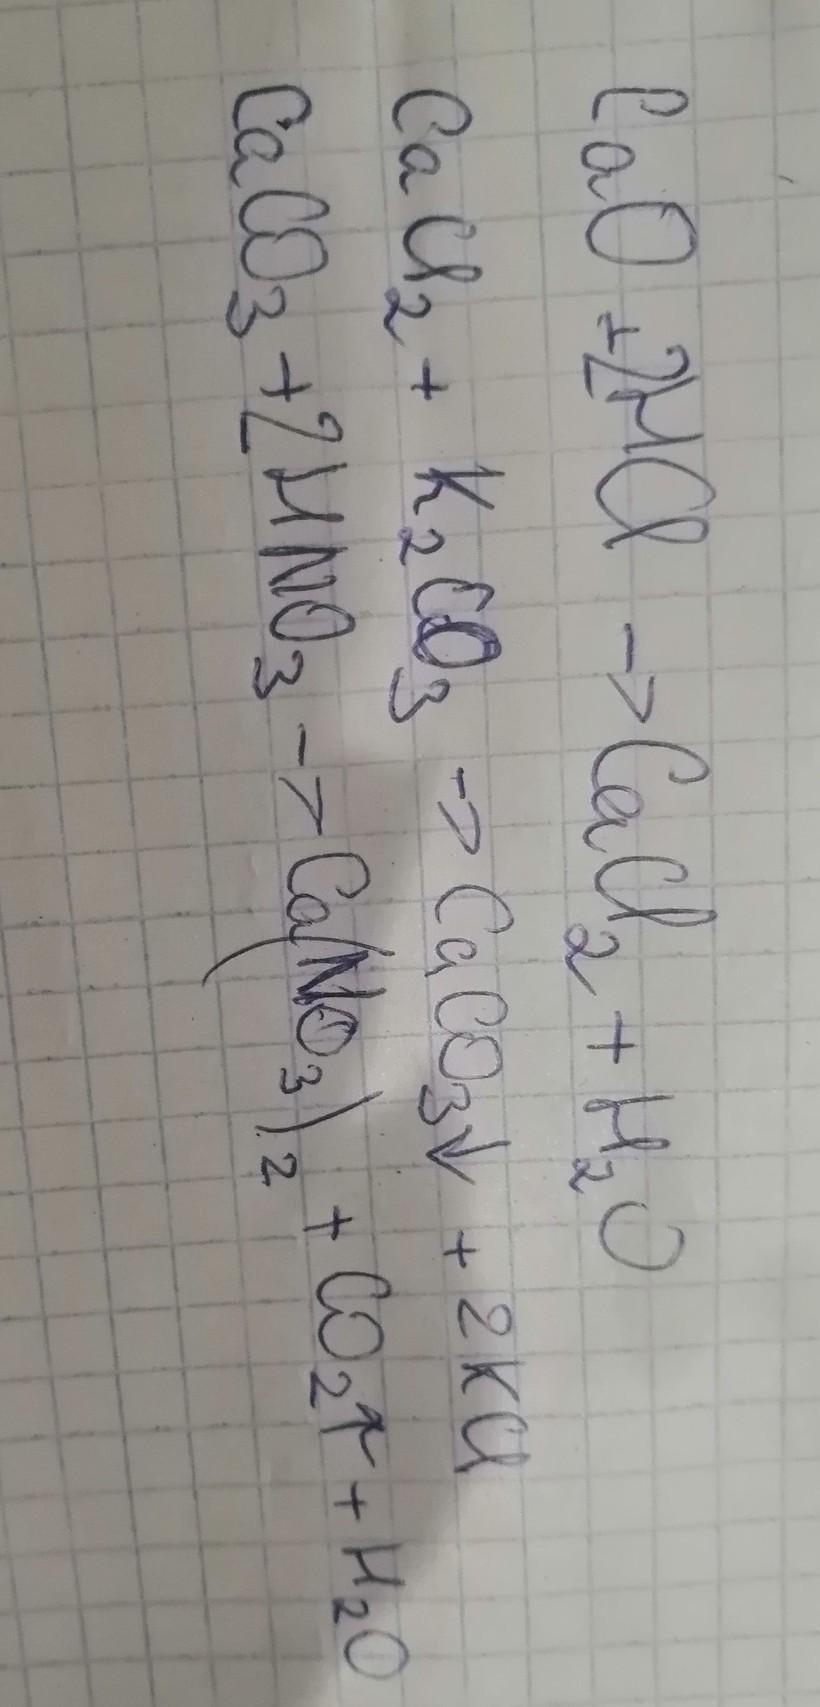 CaO + 2HCl → CaCl₂ + H₂O
CaCl₂ + K₂CO₃ → CaCO₃↓ + 2KCl
CaCO₃ + 2HNO₃ → Ca(NO₃)₂ + CO₂↑ + H₂O